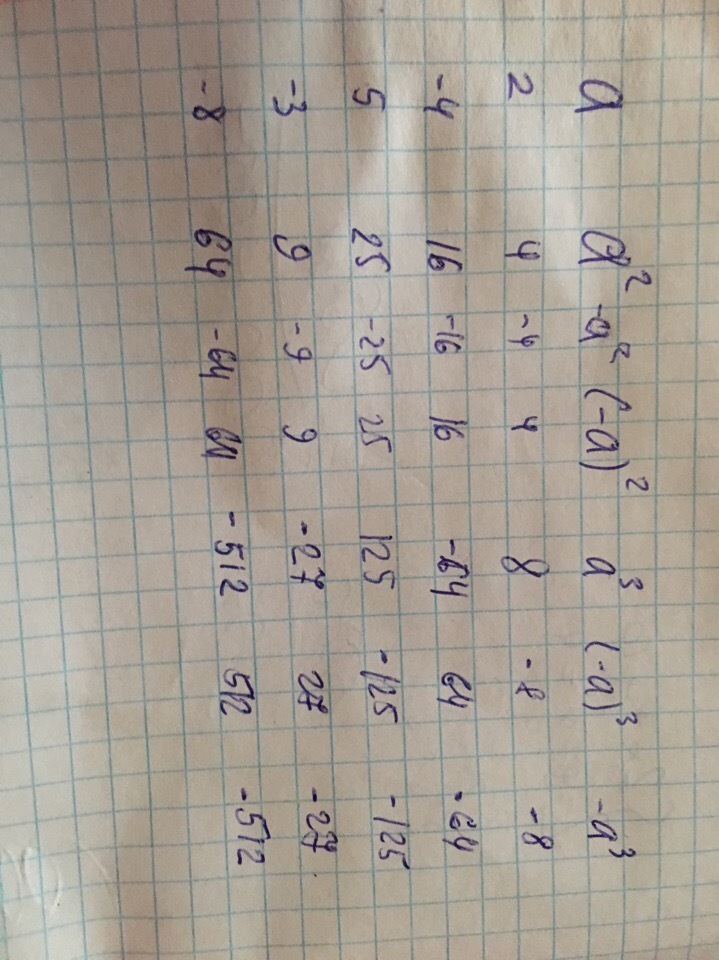 a a² -a² (-a)² a³ (-a)³ -a³
2 4 -4 4 8 -8 -8
-4 16 -16 16 -64 64 -64
5 25 -25 25 125 -125 -125
-3 9 -9 9 -27 27 -27
-8 64 -64 64 -512 512 -512